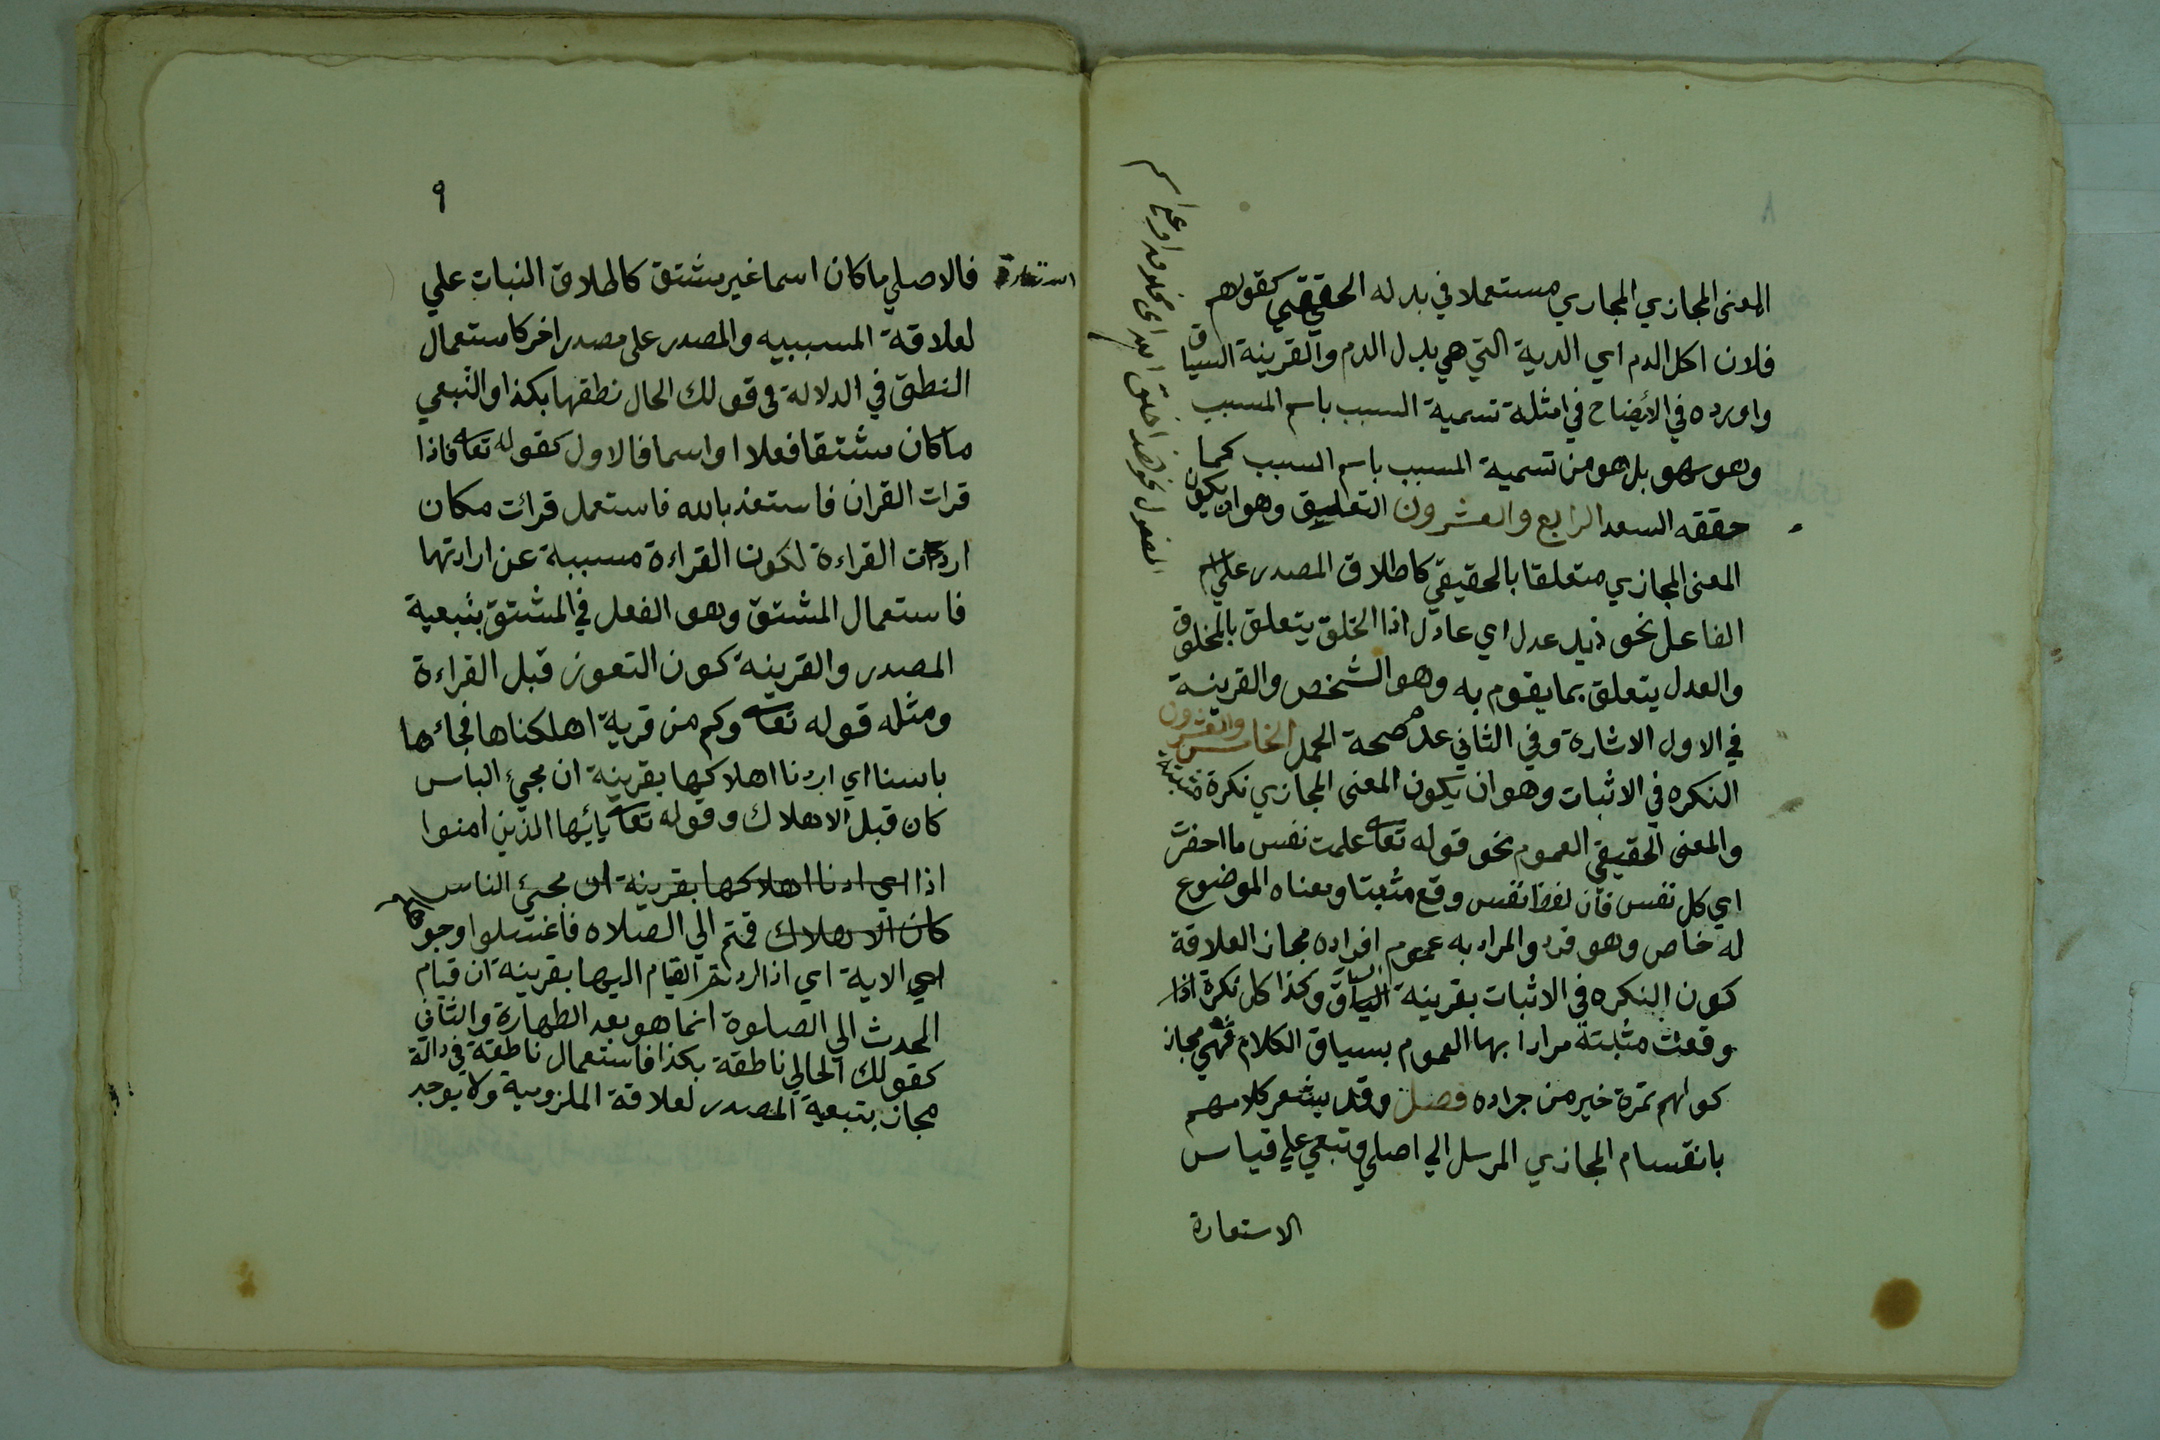 ٨
المعنى المجازي المجازي مستعملا في بدله الحقيقي كقولهم
فلان اكل الدم اي الدية التي هي بدل الدم والقرينة السياق
واورده في الأيضاح في امثلة تسمية السبب باسم المسبب
وهو سهو بل هو من تسمية المسبب باسم السبب كما
حققه السعد الرابع والعشرون التعليق وهو ان يكون
المعنى المجازي متعلقا بالحقيقي كاطلاق المصدر علي اسم
الفاعل نحو زيد عدل اي عادل اذ الخلق يتعلق بالمخلوق
والعدل يتعلق بما يقوم به وهو الشخص والقرينة
في الاول الاشارة وفي الثاني عدم صحة الحمل الخامس والعشرون
النكره في الاثبات وهو ان يكون المعنى المجازي نكرة مثبتة
والمعنى الحقيقي العموم نحو قوله تعا علمت نفس ما احضرت
اي كل نفس فان لفظ نفس وقع مثبتا ومعناه الموضوع
له خاص وهو فرد والمراد به عموم افراده مجاز العلاقة
كون النكره في الاثبات بقرينة السياق وكذا كل نكرة اذا
وقعت مثبتة مرادا بها العموم بسياق الكلام فهي مجاز
كولهم تمرة خير من جراده فصل وقد يشعر كلامهم
بانقسام المجازي المرسل الي اصلي وتبعي علي قياس
الاستعارة
المفعول نحو هذا خلق الله اي مخلوقه او علي اسم
٩
استعارة فالاصلي ما كان اسما غير مشتق كاطلاق النبات علي
لعلاقة المسببيه والمصدر على مصدر اخر كاستعمال
النطق في الدلالة في قولك الحال نطقها بكذا والتبعي
ما كان مشتقا فعلا او اسما فالاول كقوله تعا فاذا
قرات القران فاستعذ بالله فاستعمل قرائت مكان
اردت القراءة لكون القراءة مسببة عن ارادتها
فاستعمال المشتق وهو الفعل في المشتق بتبعية
المصدر والقرينة كون التعوز قبل القراءة
ومثله قوله تعا وكم من قرية اهلكناها فجائها
باسنا اي اردنا اهلاكها بقرينة ان مجئ الباس
كان قبل الاهلاك وقوله تعا يائيها الذين امنوا
اذا اي اردنا اهلاكها بقرينة ان مجئ الناس
كان الاهلاك قمتم الي الصلاه فاغسلوا وجوهكم
الي الاية اي اذا اردتم القيام اليها بقرينة ان قيام
المحدث الي الصلوة انما هو بعد الطهارة والثاني
كقولك الحالي ناطقة بكذا فاستعمال ناطقة في دالة
مجاز بتبعية المصدر لعلاقة الملزومية ولا يوجد